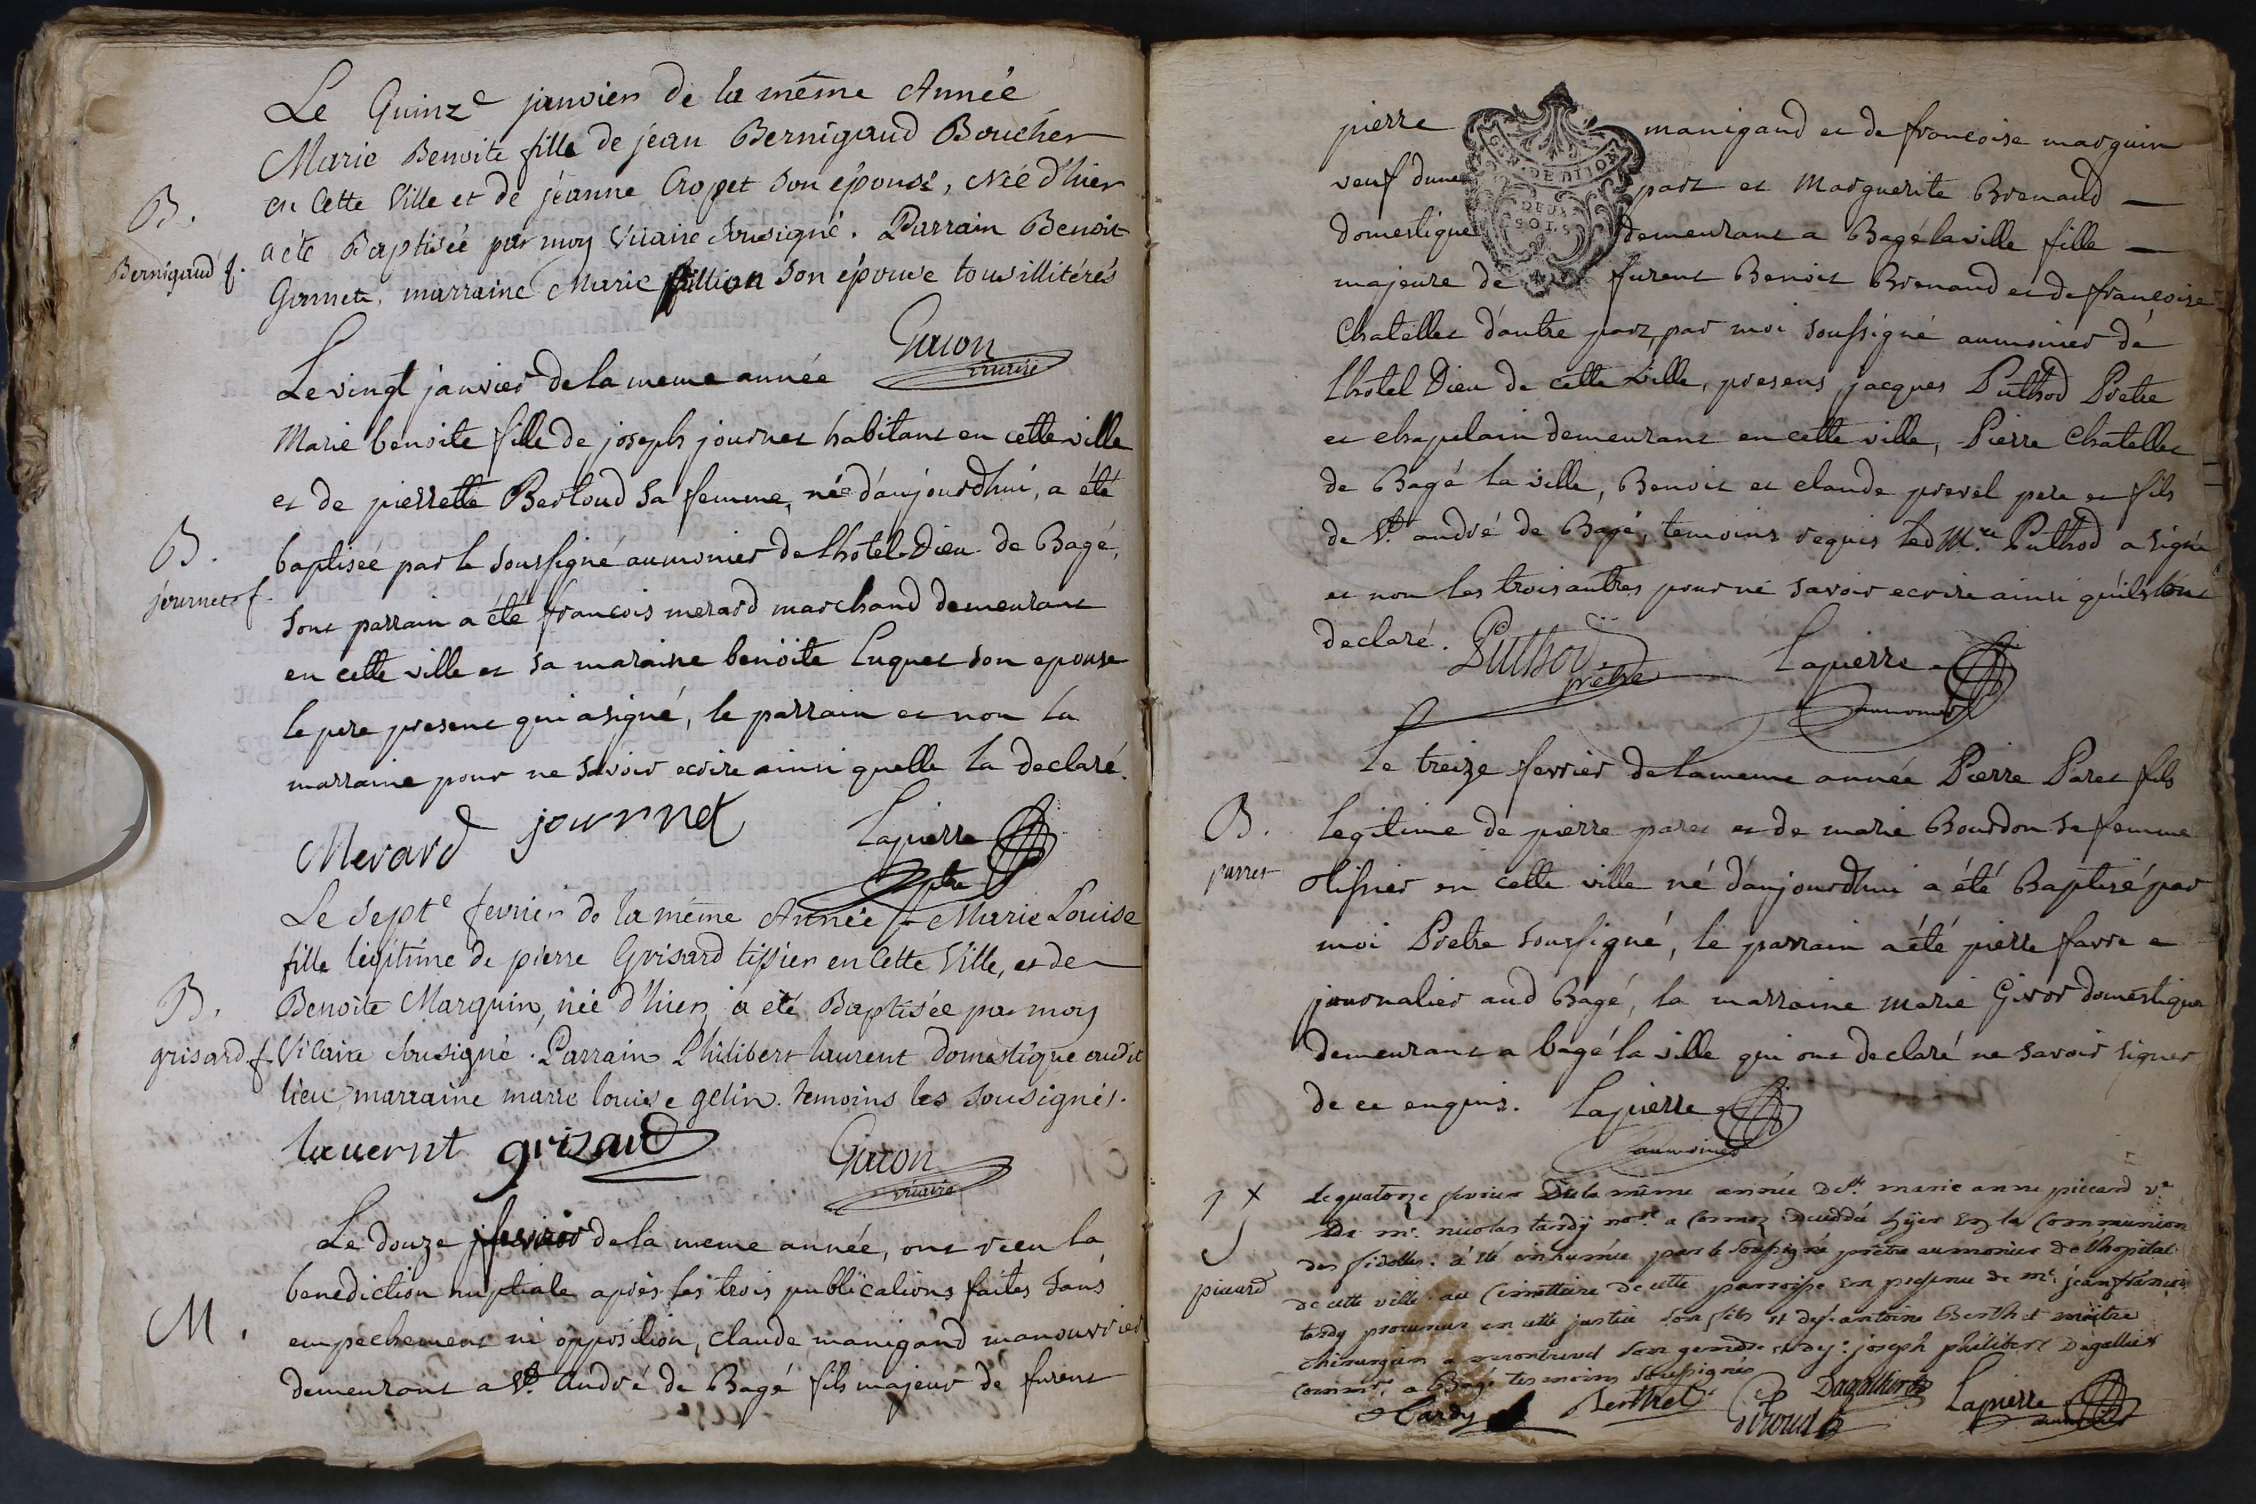 Le Quinze janvier de la même Année
Marie Benoite fille de jean Bernigaud Boucher
en Cette Ville et de jeanne Cropet son épouse, née d'hier
B.
a été Baptisée par moy Vicaire sousigné. Parrain Benoit
Bernigaud f.
Gonnet, marraine Marie fillion son épouse tous illitérés
Gacon
vicaire
Le vingt janvier de la meme année
Marie benoite fille de joseph journet habitant en cette ville
et de pierrette Berloud sa femme, née d'aujourdhui, a été
B.
baptisée par le soussigné aumonier de lhotel Dieu de Bagé,
journet f.
sont parrain a été francois merard marchand demeurant
en cette ville et sa maraine benoite Luquet son epouse
le pere present qui a signé, le parrain et non la
marraine pour ne savoir ecrire ainsi quelle la declaré.
Merard journet Lapierre
ptre
Le septe fevrier de la même Année Marie Louise
fille legitime de pierre Grisard tissier en Cette Ville, et de
B.
Benoite Marguin, née d'hier a eté Baptisée par moy
grisard f.
Vicaire sousigné. Parrain Philibert laurent domestique audit
lieu, marraine marie louise gelin. temoins les sousignés.
lauernt grisard Gacon
vicaire
Le douze fevrier de la meme année, ont recu la
benediction nuptiale après les trois publications faites sans
M.
empechement ni opposition, claude manigand manouvrier
demeurant a St. André de Bagé fils majeur de furent
pierre manigand et de francoise marguin
veuf dune part et Marguerite Brenaud
domestique demeurant a Bagé la ville fille
majeure de furent Benoit Brenaud et de francoise
GEN. DE DIJON
DEUX
SOLS
Chatellet d'autre part, par moi soussigné aumonier de
lhotel Dieu de cette ville, presens jacques Puthod Prêtre
et chapelain demeurant en cette ville, Pierre Chatellet
de Bagé la ville, Benoit et claude prevel pere et fils
de St. andré de Bagé, temoins requis led Mre. Puthod a signé
et non les trois autres pour ne savoir ecrire ainsi quils lont
declaré. Puthod Lapierre
prêtre aumonier
Le treize fevrier de la meme année Pierre Paret fils
B.
legitime de pierre paret et de marie Bourdon sa femme
parret
tissier en cette ville né d'aujourdhui a été Baptisé par
moi Prêtre soussigné, le parrain a été pierre favre
journalier aud Bagé, la marraine marie Giror domestique
demeurant a bagé la ville qui ont declaré ne savoir signer
de ce enquis. Lapierre
aumonier
Le quatorze fevrier De la même année delle marie anne piccard ve.
de me. nicolas tardy nore. a decedée hyer En la Communion
des fidelles. a été inhumée par le soussigné prêtre aumonier de lhopital
piccard
de cette ville au Cimettiere de cette parroisse en presence de me. jean francois
tardy procureur en cette justice son fils et de sr. antoine Berthet maitre
chirurgien a son gendre et de sr. joseph philibert Dagallier
a Bagé temoins soussignés
Tardy Berthet Giroud Dagallier Lapierre
aumonier